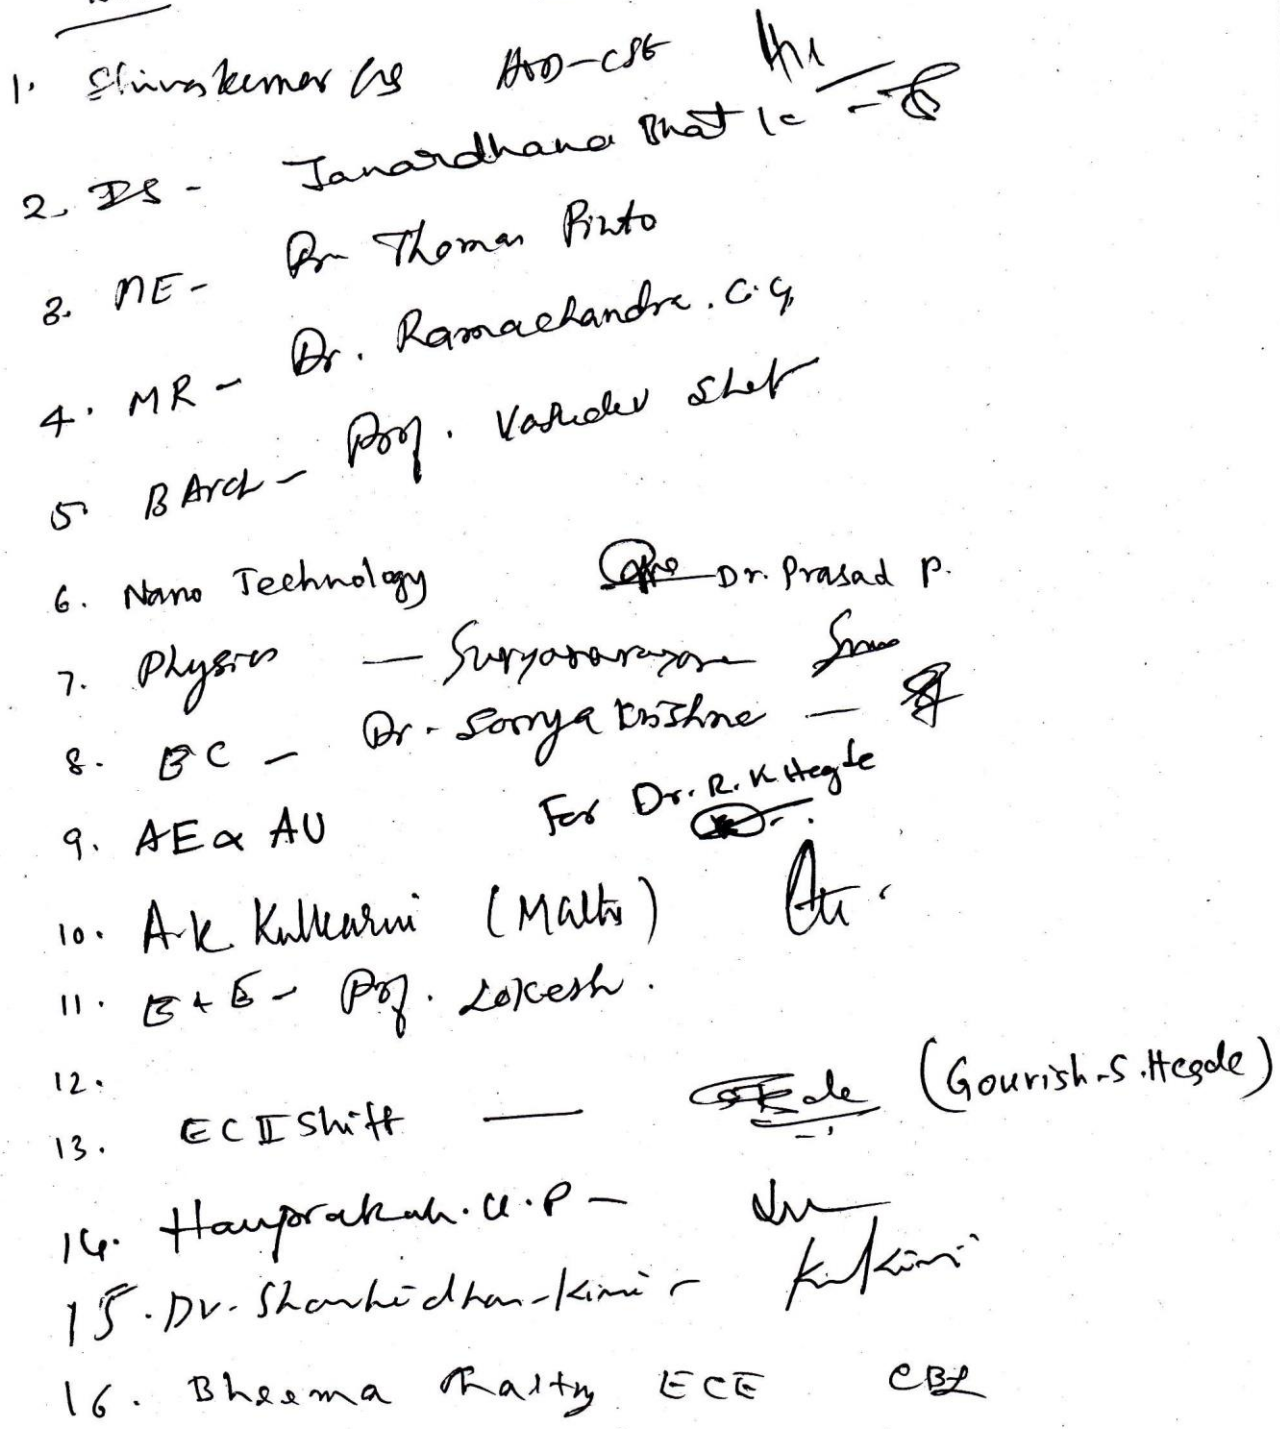 1. Shivakumar GS HOD-CSE
2. IS - Janardhana Bhat K
3. ME - Dr Thomas Pinto
4. MR - Dr. Ramachandra. C.G,
5 B Arch - Prof. Vasudev Shet
6. Nano Technology Dr. Prasad P.
7. Physics - Suryanarayana
8. EC - Dr. Sorrya Krishna -
9. AE & AU For Dr. R. K Hegde
10. A.K. Kulkarni (Maths)
11. E & E - Prof. Lokesh.
12.
13. EC II Shift — (Gourish.S.Hegde)
14. U.P -
15. Dr.
16. Bheema ECE